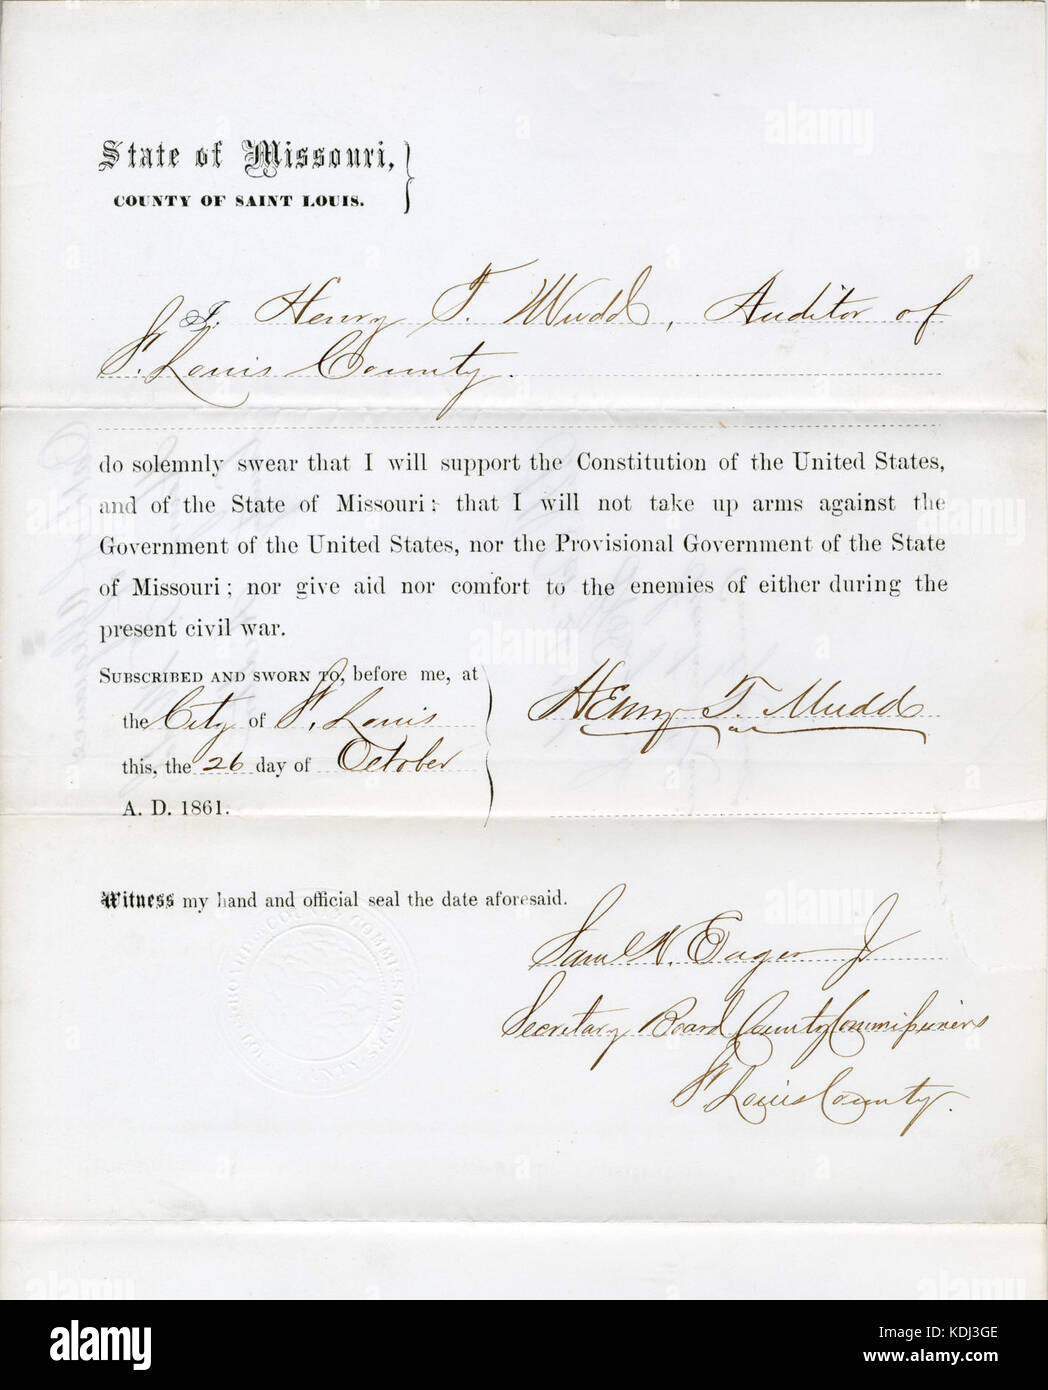 State of Missouri,
COUNTY OF SAINT LOUIS.
I, Henry T. Mudd, Auditor of
St. Louis County.
do solemnly swear that I will support the Constitution of the United States,
and of the State of Missouri; that I will not take up arms against the
Government of the United States, nor the Provisional Government of the State
of Missouri; nor give aid nor comfort to the enemies of either during the
present civil war.
SUBSCRIBED AND SWORN TO, before me, at
the City of St. Louis
this, the 26 day of October
A. D. 1861.
Henry T. Mudd
Witness my hand and official seal the date aforesaid.
COUNTY COMMISSIONERS
Saml N. Eager Jr
Secretary Board County Commissioners
St Louis County.
alamy
Image ID: KDJ3GE
www.alamy.com